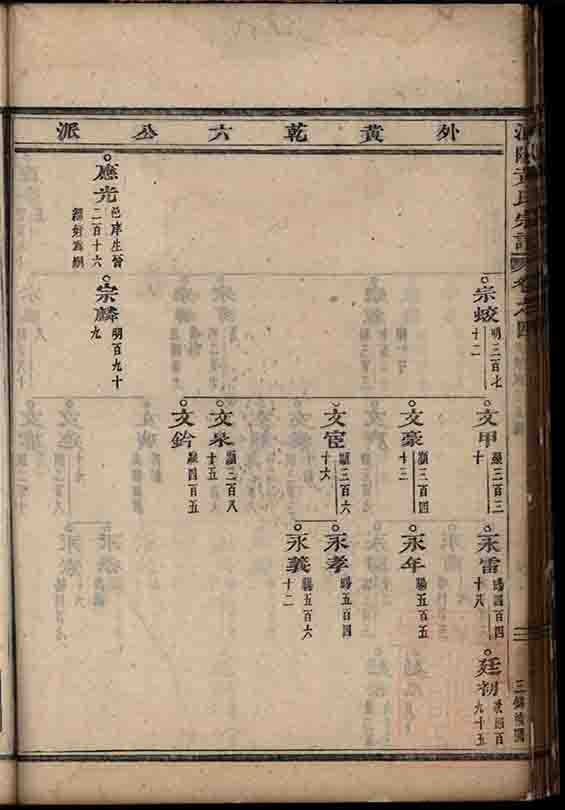 外黄乾六公派
黄氏宗譜
卷之四
宗蛟
明三百七
十二
文甲
顯三百三
十
永雷
四百四
十八
廷初
百
九十五
文豪
顯三百四
十三
永年
五百五
文宦
顯三百六
十六
永孝
五百四
永義
五百六
十二
文泉
顯三百八
十五
文鈐
顯四百五
應光
邑庠生晉
二百十六
宗麟
明百九十
九